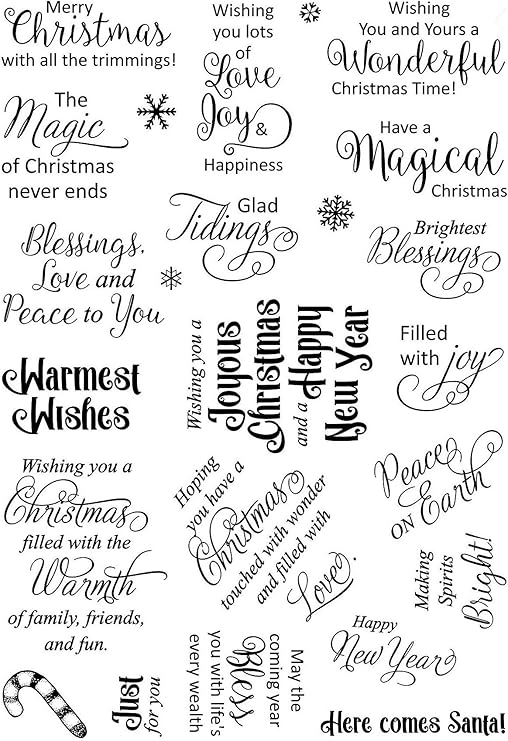 Merry
Christmas
with all the trimmings!
Wishing
you lots
of
Love
Joy &
Happiness
Wishing
You and Yours a
Wonderful
Christmas Time!
The
Magic
of Christmas
never ends
Have a
Magical
Christmas
Glad
Tidings
Blessings,
Love and
Peace to You
Brightest
Blessings
Wishing you a
Joyous
Christmas
and a Happy
New Year
Filled
with joy
Warmest
Wishes
Wishing you a
Christmas
filled with the
Warmth
of family, friends,
and fun.
Hoping
you have a
Christmas
touched with wonder
and filled with
Love.
Peace
ON Earth
Making
Spirits
Bright!
Happy
New Year
Just
for you
May the
coming year
Bless
you with life's
every wealth
Here comes Santa!